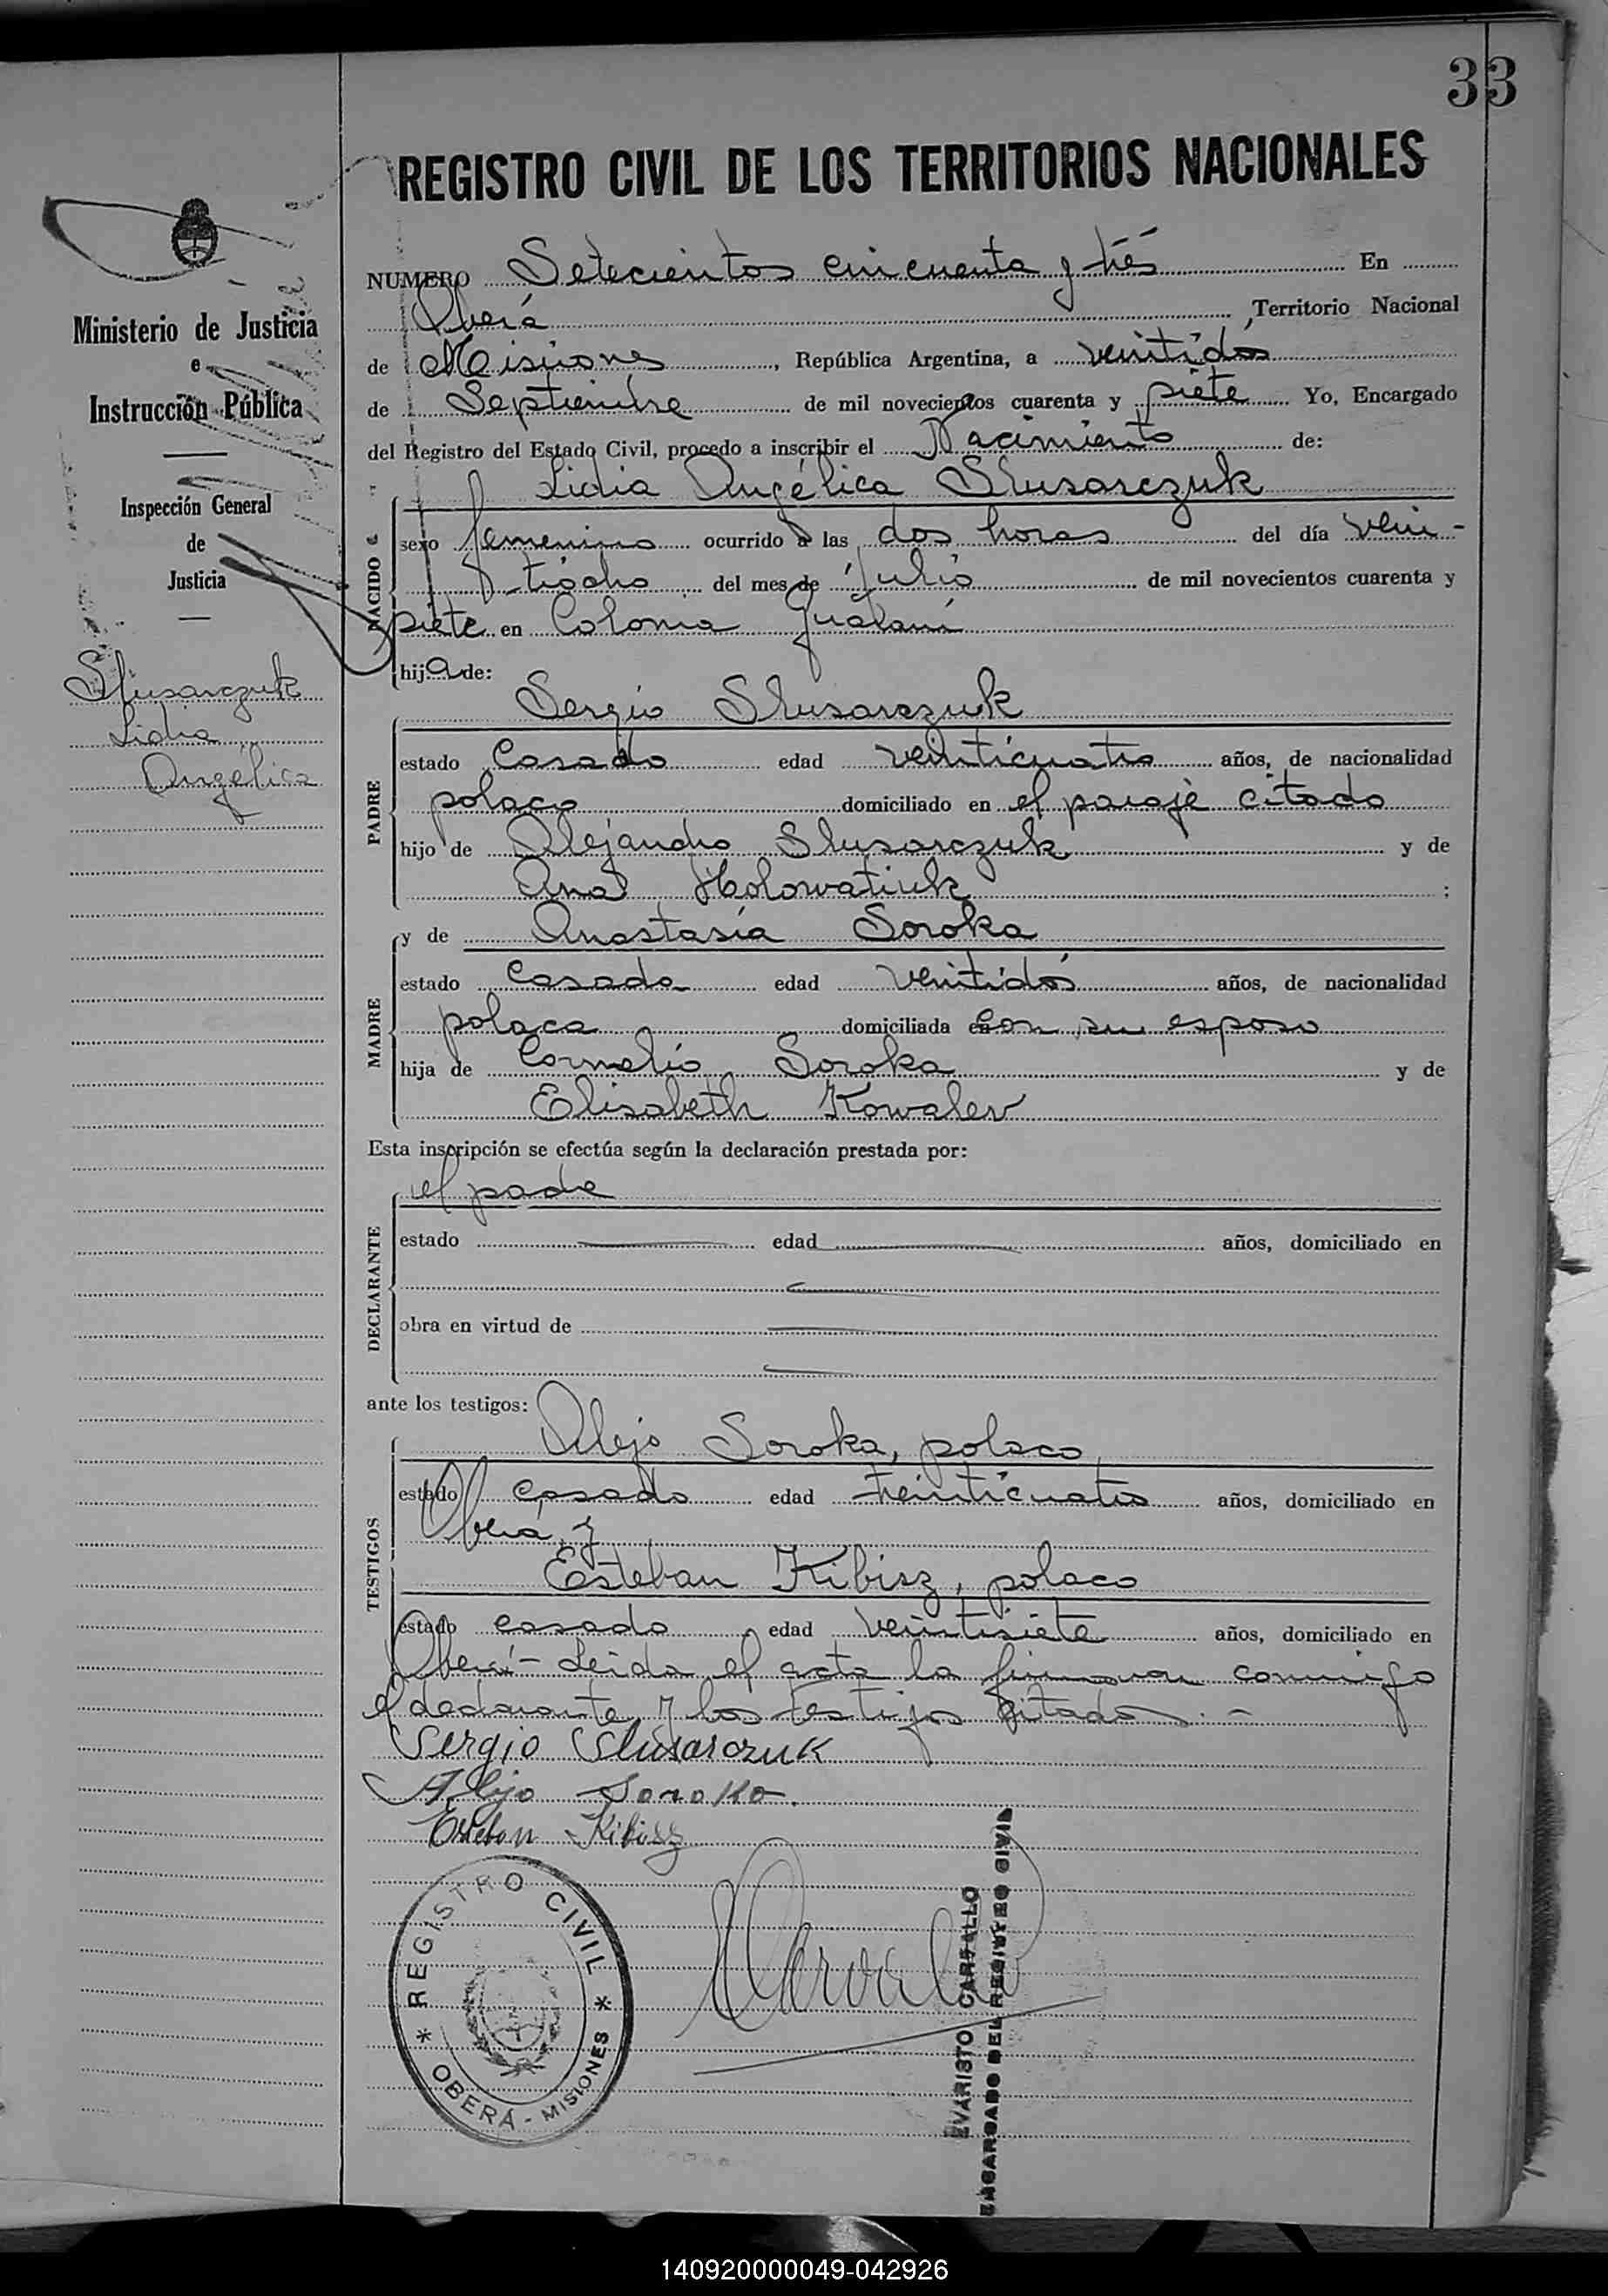 33
REGISTRO CIVIL DE LOS TERRITORIOS NACIONALES
NUMERO Setecientos cincuenta y trés En
Oberá Territorio Nacional
de Misiones, República Argentina, a veintidós
de Septiembre de mil novecientos cuarenta y siete Yo, Encargado
del Registro del Estado Civil, procedo a inscribir el Nacimiento de:
Lidia Angélica Slusarczuk
sexo femenino ocurrido a las dos horas del día vein-
tiócho del mes de Julio de mil novecientos cuarenta y
siete en Colonia Guaraní
hija de:
NACIDO
Sergio Slusarczuk
estado Casado edad veinticuatro años, de nacionalidad
polaco domiciliado en el paraje citado
hijo de Alejandro Slusarczuk y de
Ana Holowatiuk ;
PADRE
y de Anastasia Soroka
estado Casada edad veintidós años, de nacionalidad
polaca domiciliada en con su esposo
hija de Cornelio Soroka y de
Elisabeth Kowalew
MADRE
Esta inscripción se efectúa según la declaración prestada por:
el padre
estado edad años, domiciliado en
obra en virtud de
DECLARANTE
ante los testigos:
Alejo Soroka, polaco
estado casado edad treinticuatro años, domiciliado en
Oberá y
Esteban Kibisz, polaco
estado casado edad veintisiete años, domiciliado en
Oberá - Leida el acta la firman conmigo
el declarante y los testigos citados. -
TESTIGOS
Sergio Slusarczuk
Alejo Soroka.
Esteban Kibisz
REGISTRO CIVIL
OBERÁ - MISIONES
EVARISTO CARBALLO
ENCARGADO DEL REGISTRO CIVIL
Ministerio de Justicia
e
Instrucción Pública
Inspección General
de
Justicia
Slusarczuk
Lidia
Angélica
140920000049-042926